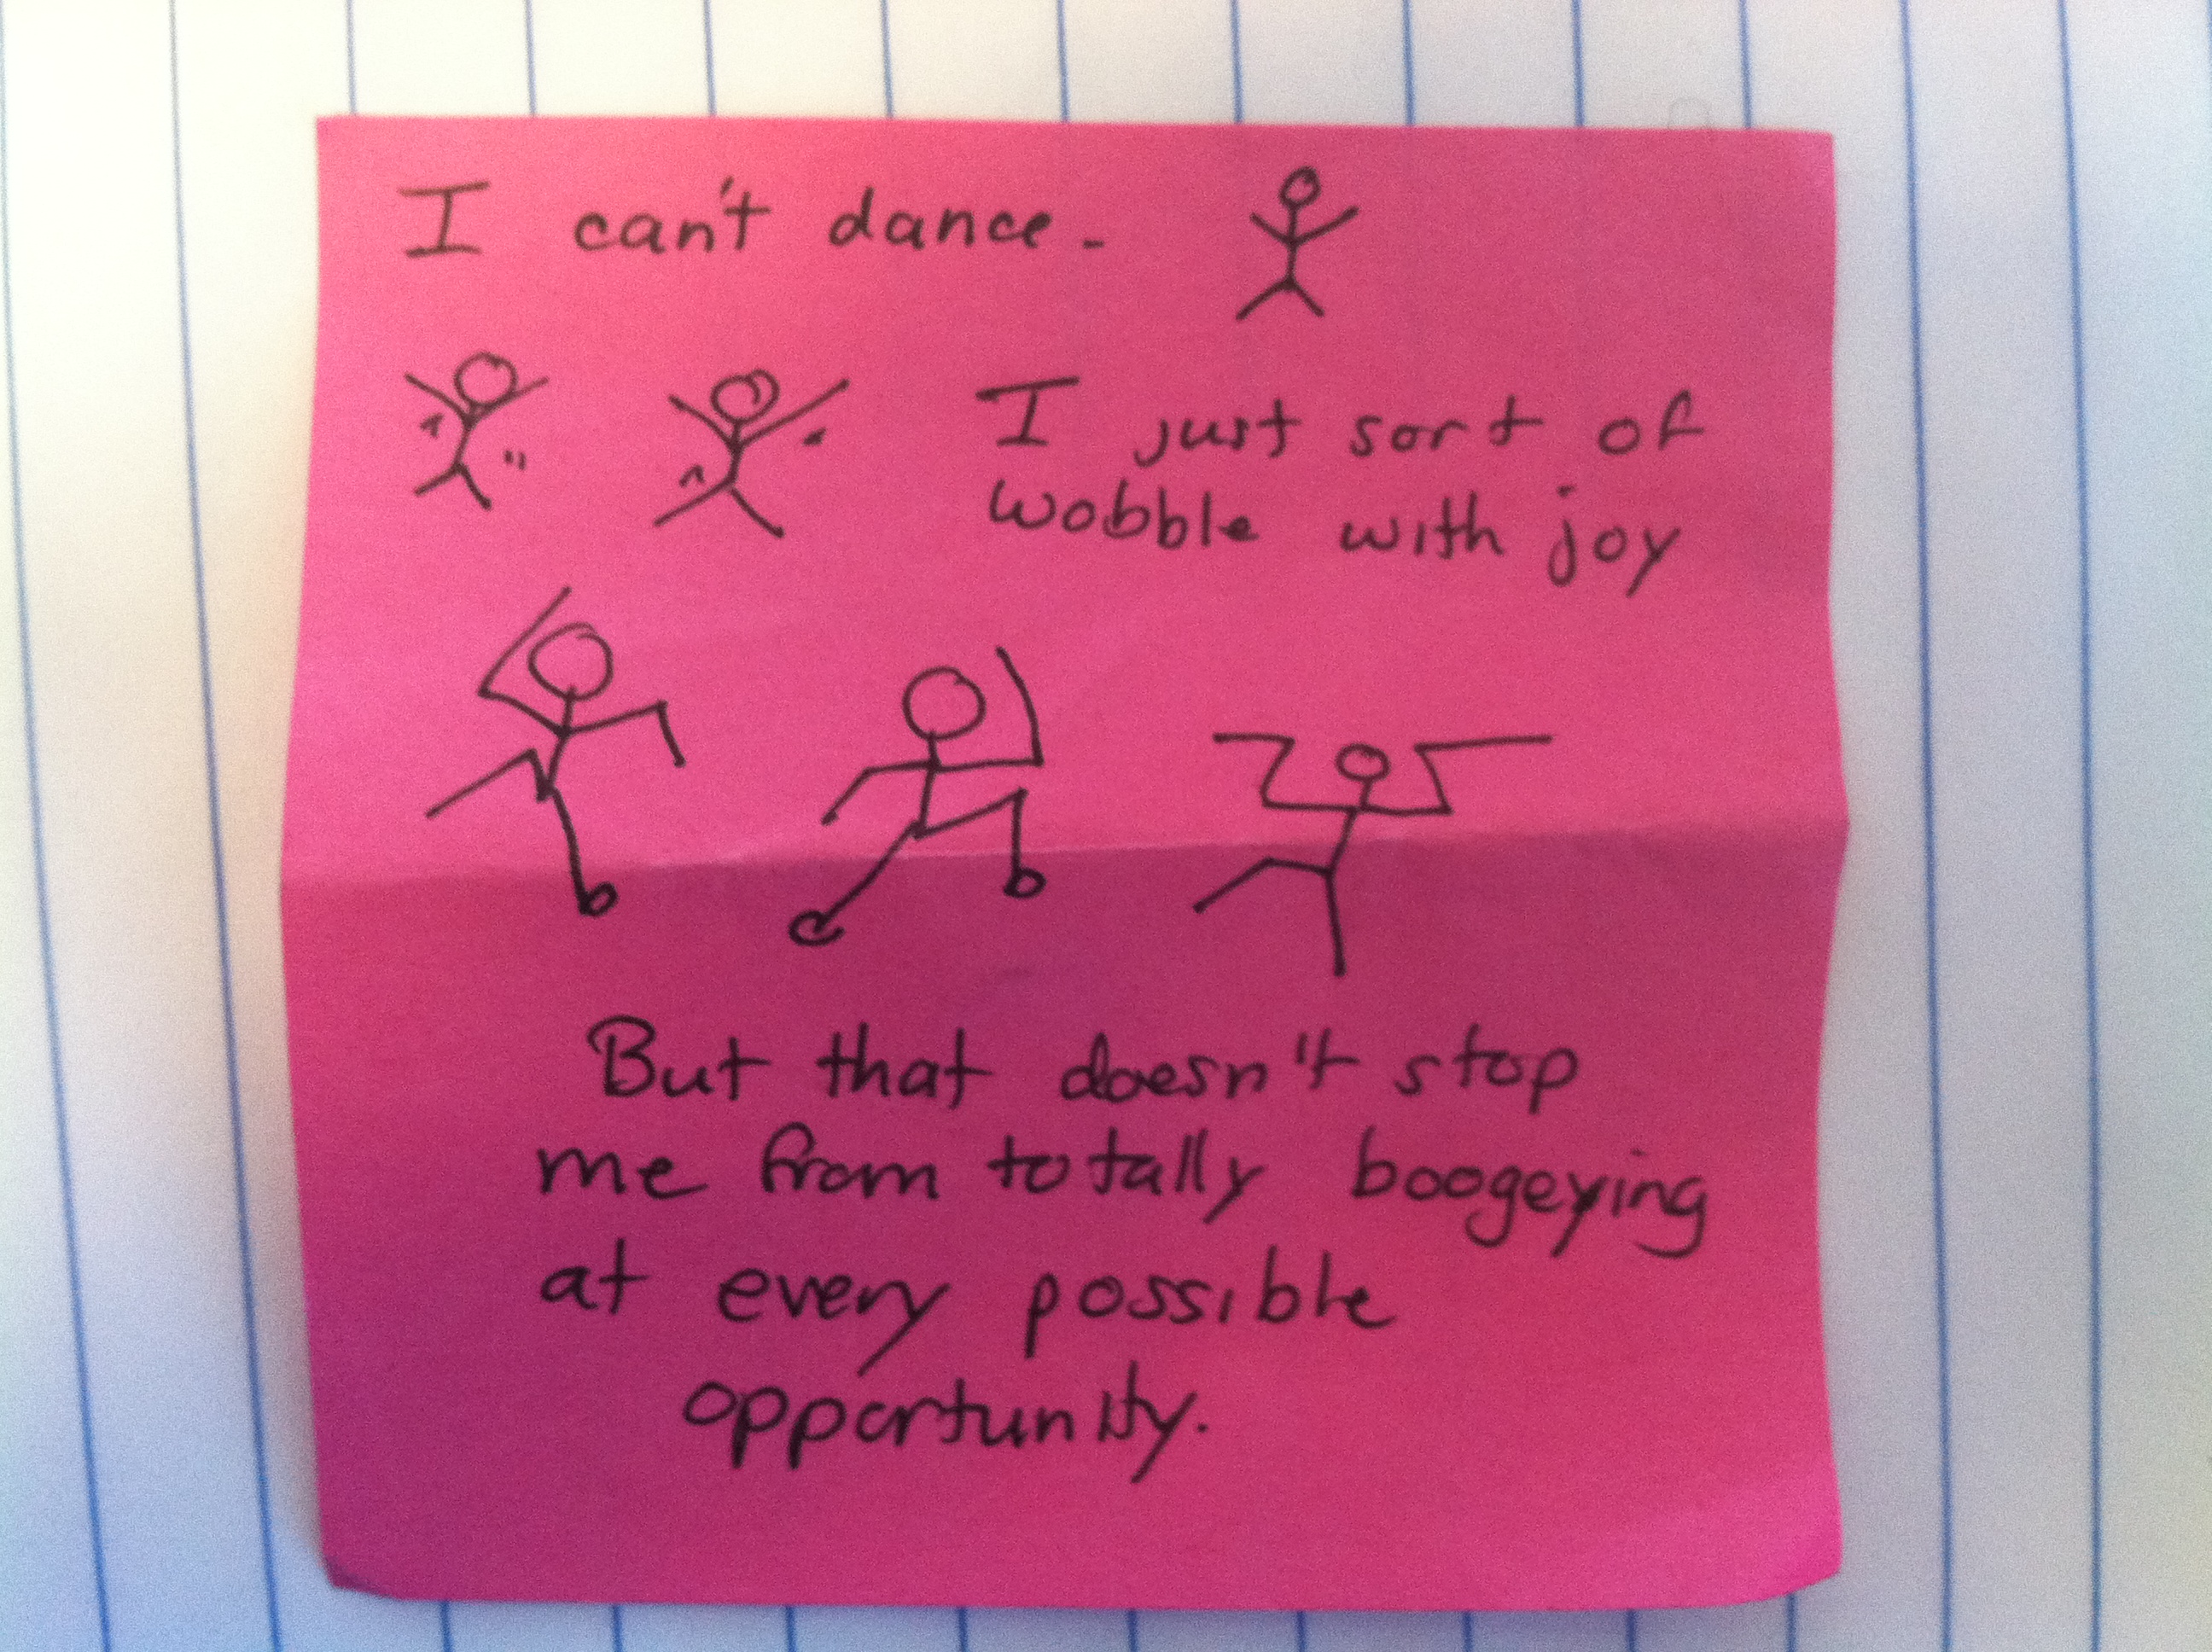 I can't dance -
I just sort of
wobble with joy
But that doesn't stop
me from totally boogeying
at every possible
opportunity.